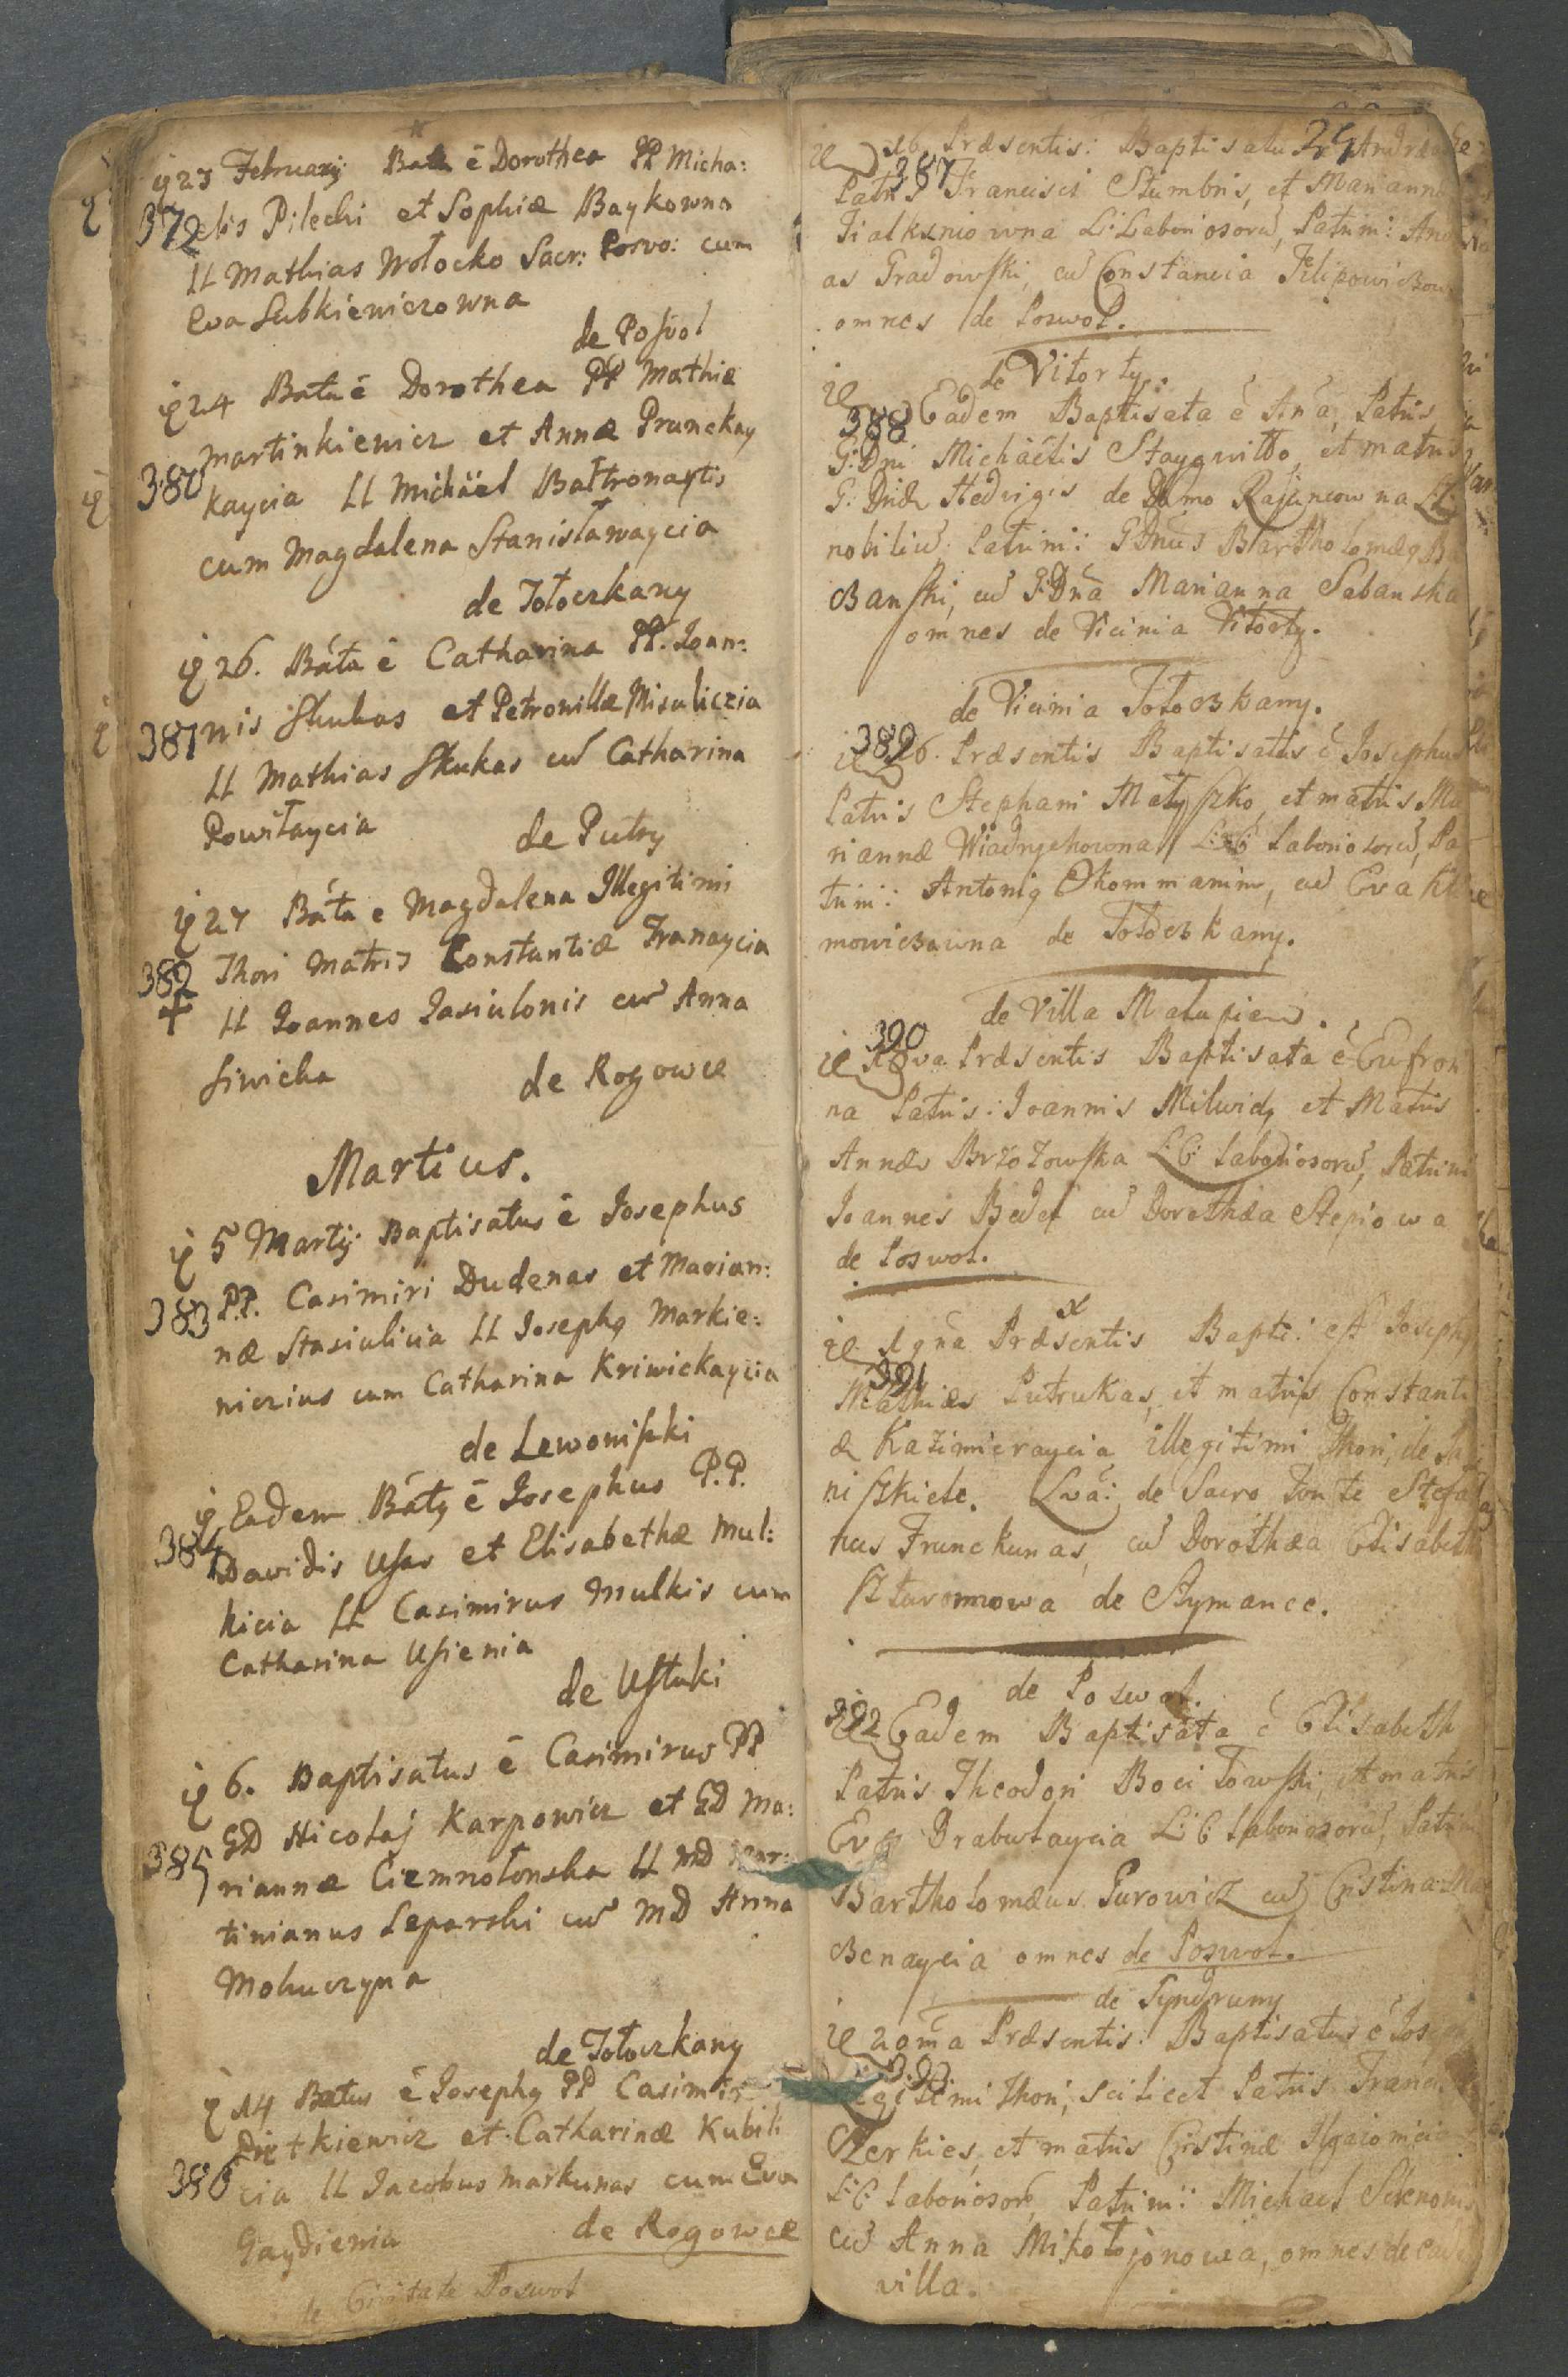 23 Februarij Bata ē Dorothea PP Micha:
372 elis Pilechi et Sophiæ Baykowna
LL Mathias Wołocko Sacr: Posvo: cum
Eva Lubkiewiczowna
de Posvol
24 Bata ē Dorothea PP Mathiæ
Martinkiewicz et Annæ Prunckay
380 kaycia LL Michäel Bałtronaytis
cum Magdalena Stanisławaycia
de Tołoczkany
26. Bata ē Catharina PP. Joan:
381 nis Skukas et Petronillæ Misuliczia
LL Mathias Skukas cū Catharina
Powiłaycia
de Putry
27 Bata e Magdalena Illegitimi
382 Thori Matris Constantiæ Franaycia
+ LL Joannes Jasiulonis cū Anna
Siwicka
de Rogowce
Martius.
5 Martij Baptisatus ē Josephus
383 P.P. Casimiri Dudenas et Marian:
næ Stasiulicia LL Joseph9 Markie:
niczius cum Catharina Kriwickaycia
de Lewoniszki
Eadem Bat9 ē Josephus P.P.
384 Davidis Usas et Elisabethæ Mul:
kicia LL Casimirus Mulkis cum
Catharina Usienia
de Ustuki
6. Baptisatus ē Casimirus PP
GD Nicolaj Karpowicz et GD Ma:
385 riannæ Ciemnołonska LL MD Mar:
tinianus Leparski cū MD Anna
Mohuczyna
de Tołoczkany
14 Batus ē Joseph9 PP Casimir
Dietkiewicz et Catharinæ Kubili
386 cia LL Jacobus Markunas cum Eva
Gaydienia
de Rogowce
de Civitate Poswol
16. Præsentis: Baptisatu Andreas
387 Patris Francisci Stumbris, et Marianna
Fialkzniowna L: Laboriosorū, Patrini: And
as Gradowski, cū Constancia Filipowiczow
omnes de Poswol.
de Vitorty.
388 Eadem Baptisata ē Ana, Patris
G: Dni Michaëlis Staygwiłło, et matris
G: Dnæ Hedvigis de Domo Rajuncowna LC
nobiliū. Patrini: GDnus Bartholomæ9 B
czanski, cū G:Dna Marianna Sabanska
omnes de Vicinia Vitorty.
de Vicinia Tołoczkany.
389 16. Præsentis Baptisatus ē Josephus
Patris Stephani Matyszko, et matris Ma
riannæ Wiadrychowna, LC Laboriosorū, Pa
trini: Antoni9 Okommanim, cū Eva Kl
mowiczowna de Tołoczkany.
de Villa Malupiew.
390 18va Præsentis Baptisata ē Eufrozi
na Patris: Joannis Milwid, et Matris
Annæ Brzozowska LC: Laboriosorū, Patrini
Joannes Beder cū Dorothæa Stepiowa
de Poswol.
x
19na Præsentis Bapti: est Joseph9
391 Mathiæ Putrukas, et matris Constanti
æ Kazimieraycia illegitimi Thori, de
niszkiele. Lvā: de Sacro Fonte Stefa
nus Frunckunas, cū Dorothæa Elisabeth
Szturomowa de Szymance.
de Poswol.
392 Eadem Baptisata ē Elisabeth
Patris Theodori Bociłowski, et matris
Evæ Drabulaycia L:C Laboriosorū, Patrini
Bartholomæus Gurowicz cū Cristina
czenaycia omnes de Poswol.
de Gyndruny
20ma Præsentis: Baptisatus ē Joseph
393 legitimi Thori, scilicet Patris Franc
Szerkies, et matris Cristinæ
L:C Laboriosorū, Patrini: Michael
cū Anna Mikołajonowa, omnes de ead
villa.